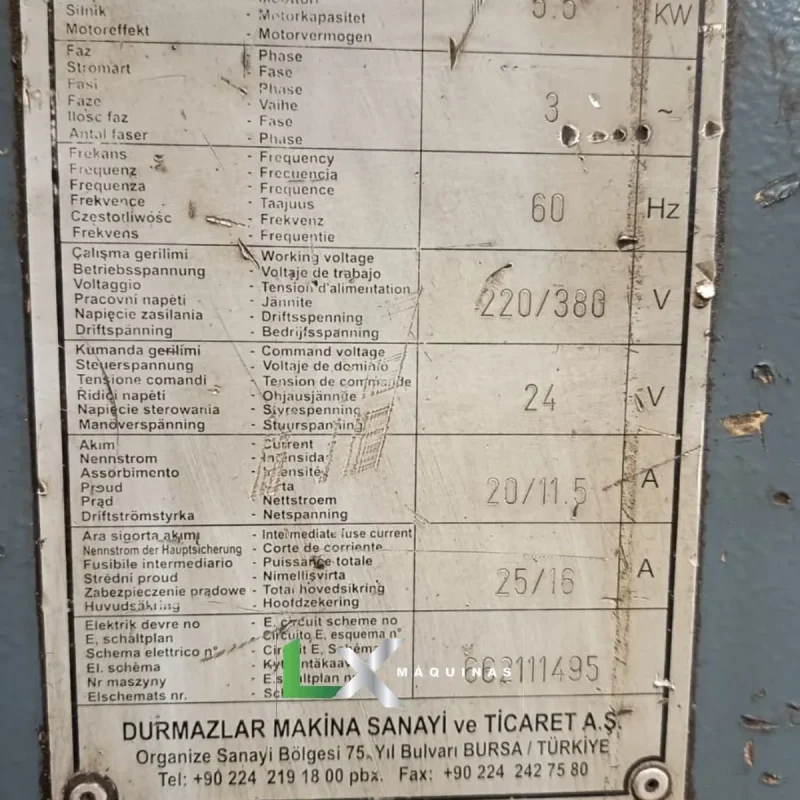 Silnik - Motorkapasitet
Motoreffekt - Motorvermogen
5.5 KW
Faz - Phase
Stromart - Fase
Fasi - Phase
Faze - Vaihe
Ilosc faz - Fase
Antal faser - Phase
3 ~
Frekans - Frequency
Frequenz - Frecuencia
Frequenza - Frequence
Frekvence - Taajuus
Częstotliwość - Frekvenz
Frekvens - Frequentie
60 Hz
Çalışma gerilimi - Working voltage
Betriebsspannung - Voltaje de trabajo
Voltaggio - Tension d'alimentation
Pracovni napéti - Jännite
Napięcie zasilania - Driftsspenning
Driftspänning - Bedrijfsspanning
220/380 V
Kumanda gerilimi - Command voltage
Steuerspannung - Voltaje de dominio
Tensione comandi - Tension de commande
Ridici napéti - Ohjausjännite
Napięcie sterowania - Styrespenning
Manöverspänning - Stuurspanning
24 V
Akım - Current
Nennstrom - Intensidad
Assorbimento - Intensité
Proud - Virta
Prąd - Nettstroem
Driftströmstyrka - Netspanning
20/11.5 A
Ara sigorta akımı - Intermediate fuse current
Nennstrom der Hauptsicherung - Corte de corriente
Fusibile intermediario - Puissance totale
Strédni proud - Nimellisvirta
Zabezpieczenie prądowe - Total hovedsikring
Huvudsäkring - Hoofdzekering
25/16 A
Elektrik devre no - E, circuit scheme no
E, schaltplan - Circuito E, esquema n°
Schema elettrico n° - Circuit E, Schéma
El. schéma
Nr maszyny - E.schaltplan
Elschemats nr.
662111495
LX MÁQUINAS
DURMAZLAR MAKİNA SANAYİ ve TİCARET A.Ş.
Organize Sanayi Bölgesi 75. Yıl Bulvarı BURSA / TÜRKİYE
Tel: +90 224 219 18 00 pbx. Fax: +90 224 242 75 80